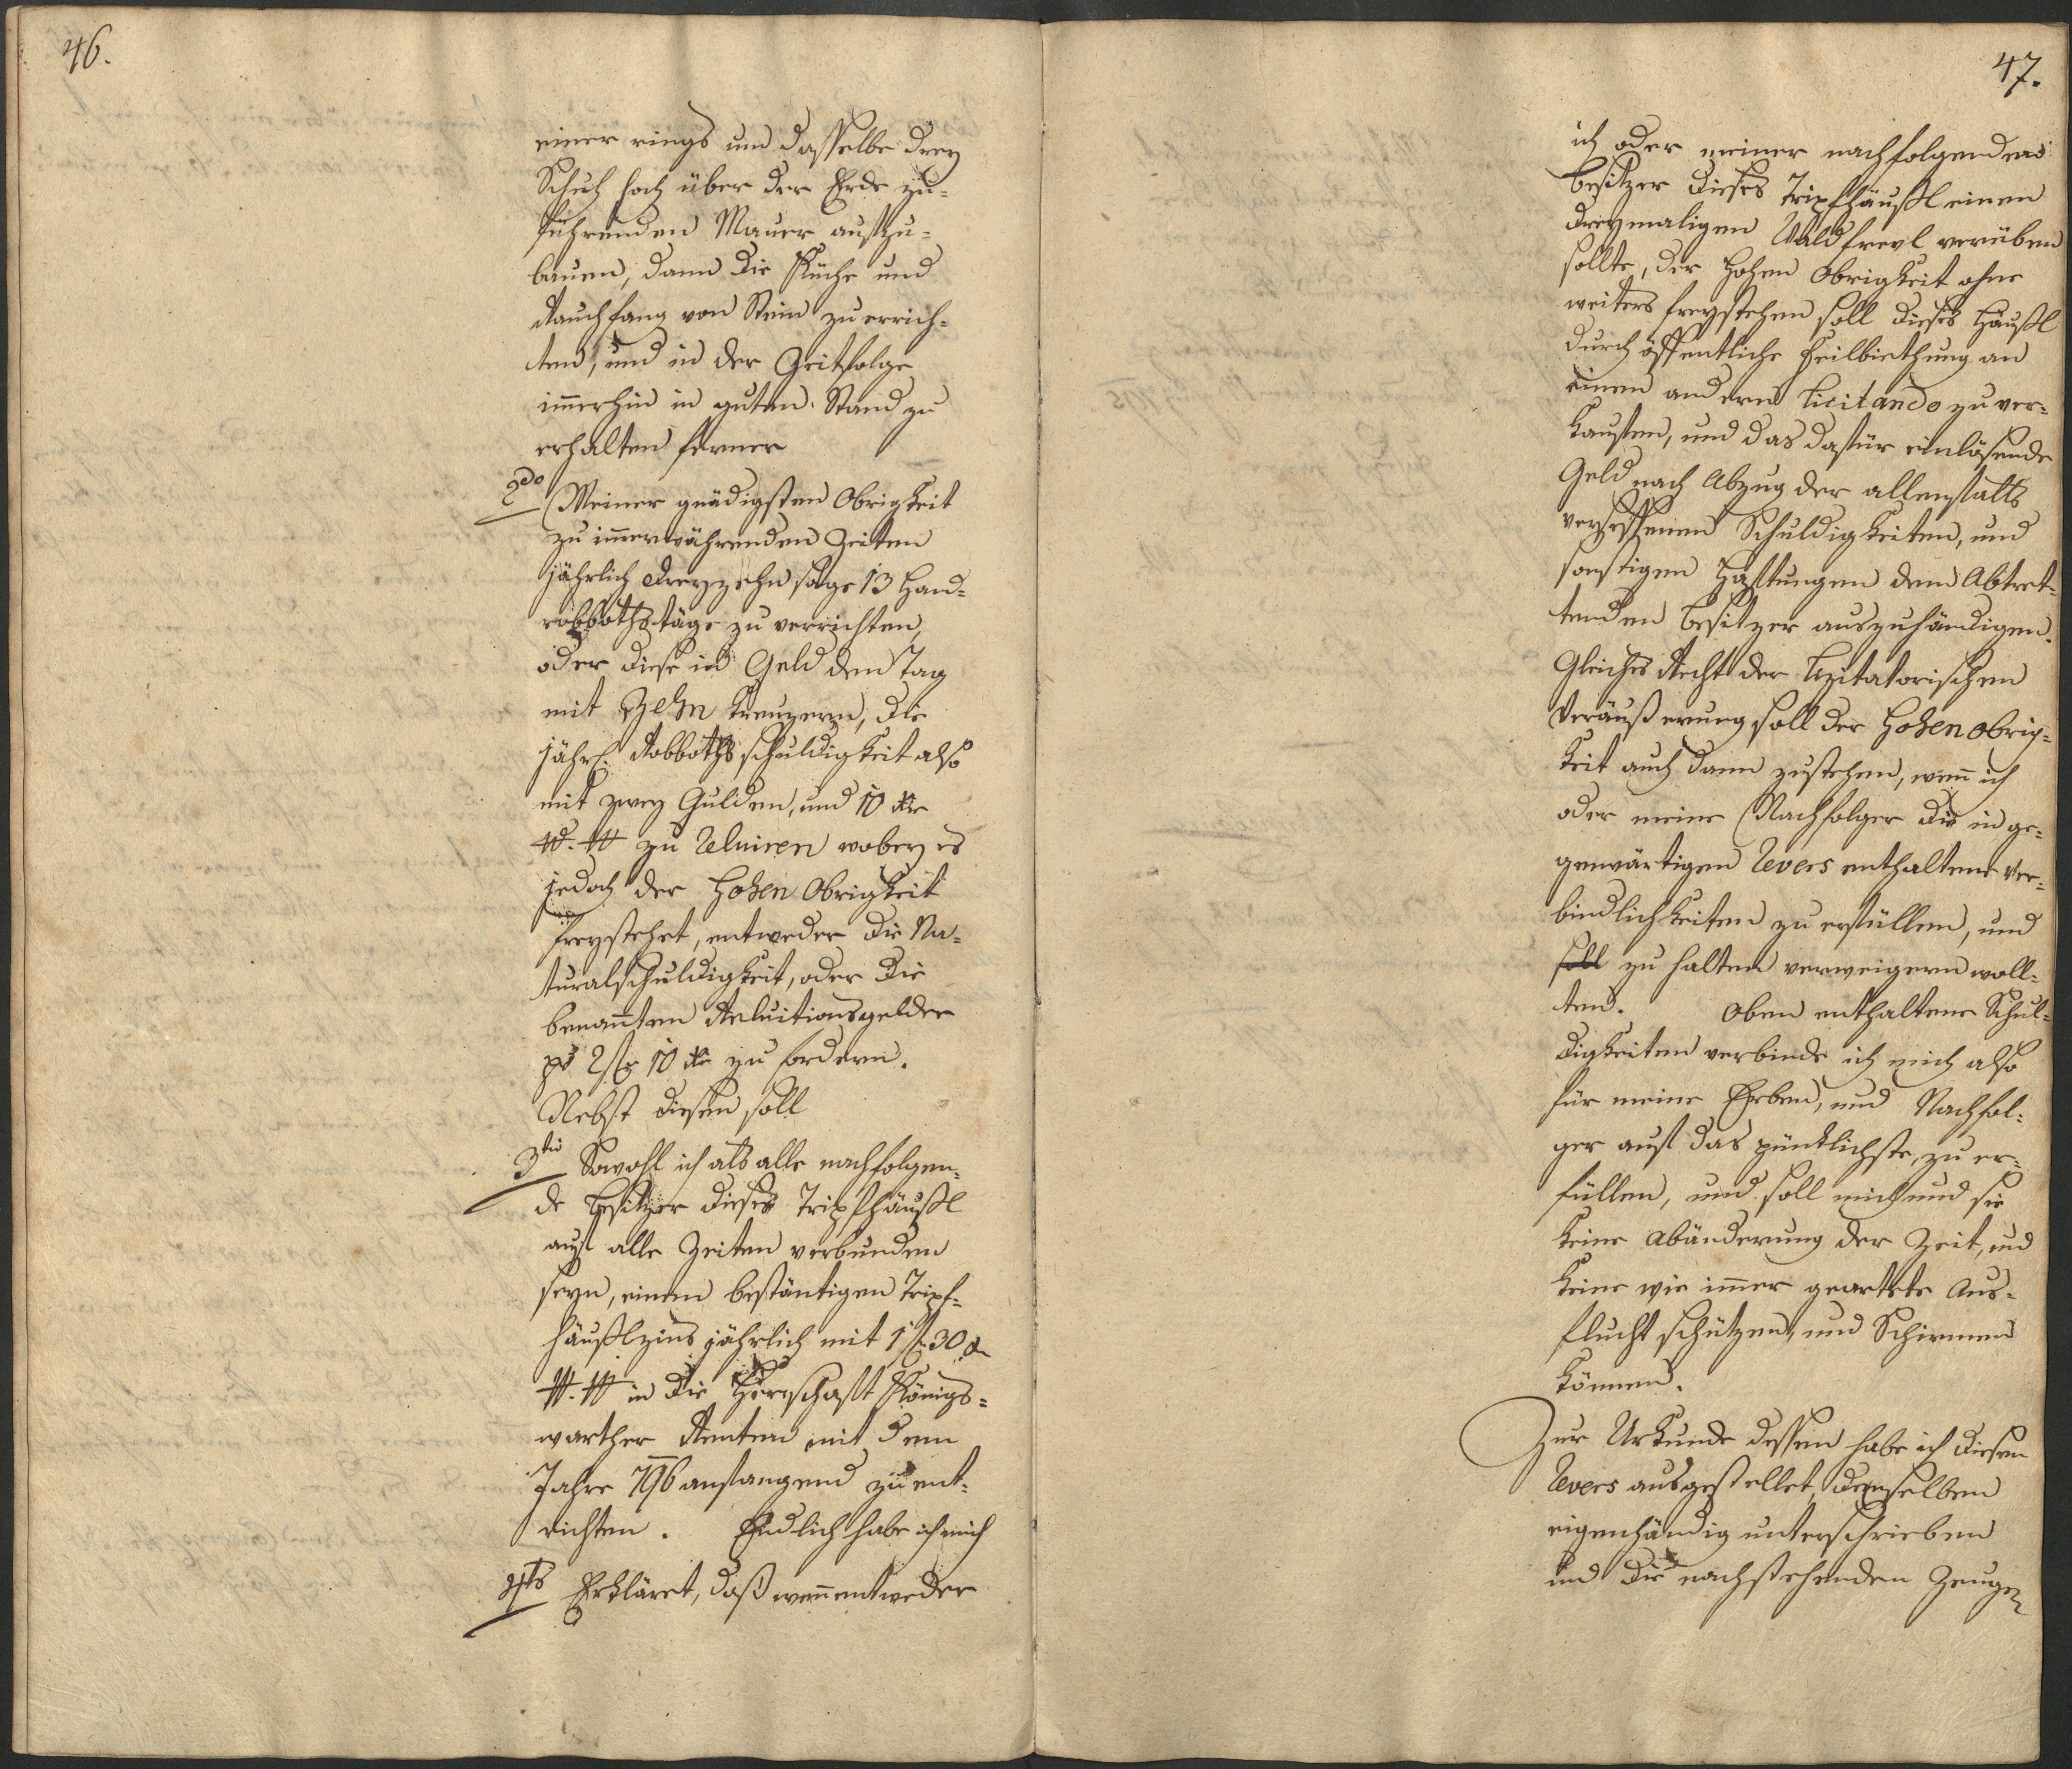 46.
einer rings um dasselbe drey
Schuh hoch über der Erde zu-
führenden Mauer auszu-
bauen, dann die Küche und
Rauchfang von Stein zu errich-
ten, und in der Zeitfolge
im̅erhin in guten Stand zu
erhalten ferner
2do Meiner gnädigsten Obrigkeit
zu im̅erwährenden Zeiten
jährlich dreyzehn sage 13 Hand-
robbothstäge zu verrichten,
oder diese in Geld den Tag
mit Zehn Kreuzern, die
jährl. Robbothsschuldigkeit also
mit zwey Gulden, und 10 xr
W. W zu Reluiren wobey es
jedoch der Hohen Obrigkeit
freystehet, entweder die Na-
turalschuldigkeit, oder die
benan̅ten Reluitionsgelder
pr 2 fl 10 xr zu fordern.
Nebst diesen soll
3tio Sowohl ich als alle nachfolgen-
de Besitzer dieses Tripfhäußl
auf alle Zeiten verbunden
seyn, einen beständigen Tripf-
häußlzins jährlich mit 1 f 30 xr
W. W in die Herrschaft Königs-
warther Renten mit dem
Jahre 796 anfangend zu ent-
richten. Endlich habe ich mich
4ts Erkläret, daß wen̅ entweder
47.
ich oder meiner nachfolgenden
Besitzer dieses Tripfhäußl einen
dreymaligen Waldfrevl verüben
sollte, der Hohen Obrigkeit ohne
weiters freystehen soll dieses Häußl
durch öffentliche Feilbiethung an
einen andern licitando zu ver-
kaufen, und das dafür einlösende
Geld nach Abzug der allenfalls
versessenen Schuldigkeiten, und
sonstigen Haftungen dem Abtret-
tenden Besitzer auszuhändigen.
Gleiches Recht der Lizitatorischen
Veräußerung soll der Hohen Obrig-
keit auch dann zustehen, wen̅ ich
oder meine Nachfolger die in ge-
genwärtigen Revers enthaltene Ver-
bindlichkeiten zu erfüllen, und
soll zu halten verweigern woll-
ten. Oben enthaltene Schul-
digkeiten verbinde ich mich also
für meine Erben, und Nachfol-
ger auf das pünktlichste, zu er-
füllen, und soll mich und sie
keine Abänderung der Zeit, und
keine wie im̅er geartete Aus-
flucht schützen, und Schirmen
können.
Zur Urkunde dessen habe ich diesen
Revers ausgestellet, denselben
eigenhändig unterschrieben
und die nachstehenden Zeugen